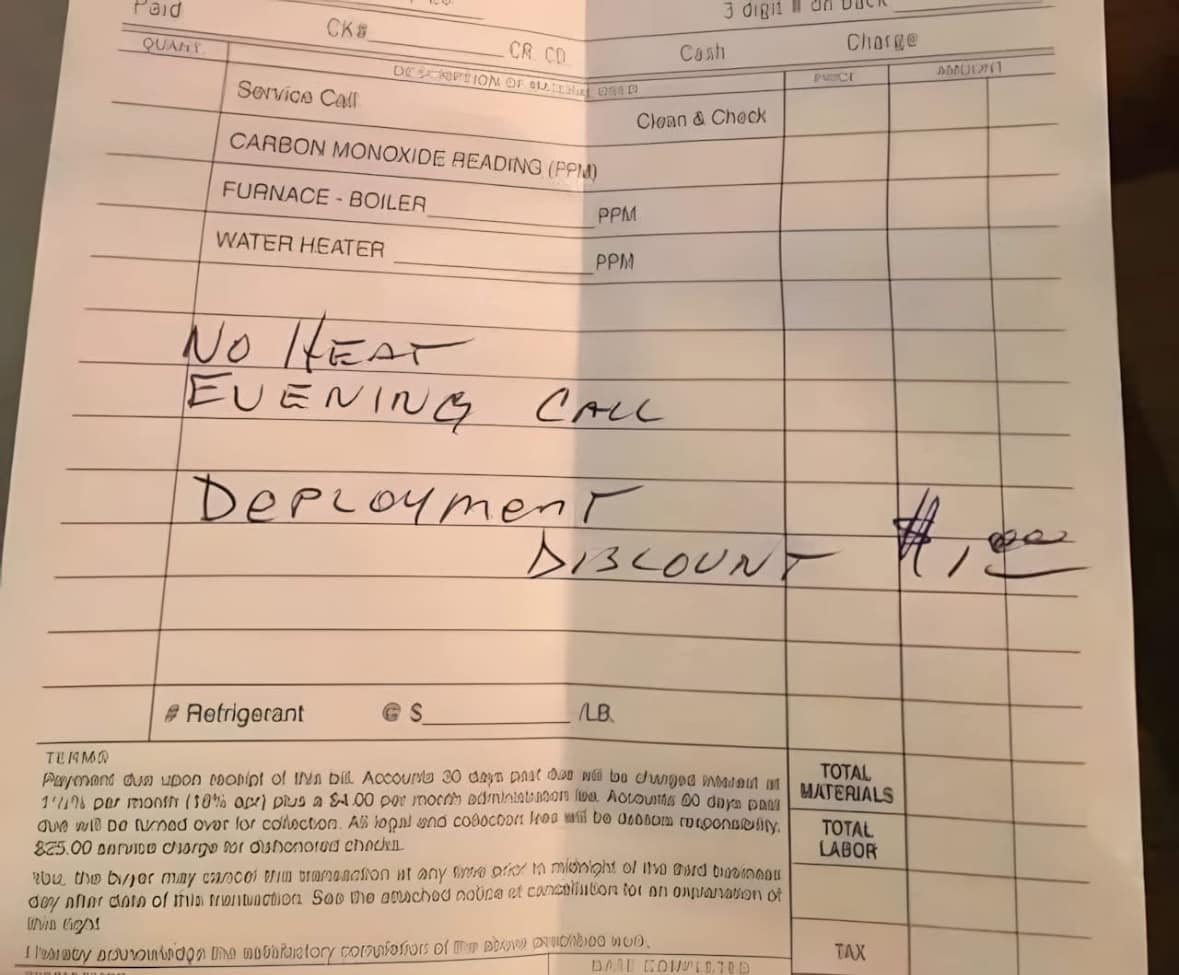 Paid
CK#
3 digit # on back
CR. CD.
Cash
Charge
QUANT.
DESCRIPTION OF
PRICE
AMOUNT
Service Call
Clean & Check
CARBON MONOXIDE READING (PPM)
FURNACE - BOILER PPM
WATER HEATER PPM
NO HEAT
EVENING CALL
DEPLOYMENT
DISCOUNT $1,00
# Refrigerant @ $ /LB.
TERMS
Payment due upon receipt of this bill. Accounts 30 days past due will be charged interest at
per month (18% apr) plus a $4.00 per month administration fee. Accounts 60 days past
due will be turned over for collection. All legal and collection fees will be responsibility.
$25.00 service charge for dishonored checks.
You, the buyer may cancel this transaction at any time prior to midnight of the third business
day after date of this transaction. See the attached notice of cancellation for an explanation of
this right
I hereby acknowledge the satisfactory completion of the above described work.
TOTAL
MATERIALS
TOTAL
LABOR
TAX
DATE COMPLETED